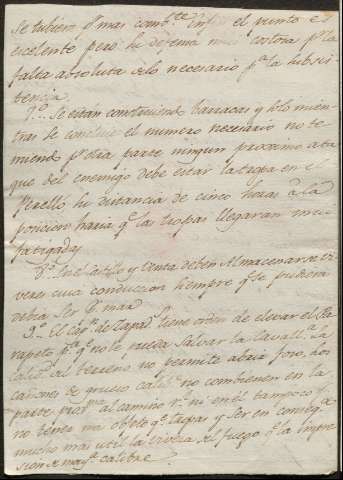 se tubiere p.r mas comb.te el punto es
excelente pero su defensa mui costosa p.r la
falta absoluta de lo necesario p.a la subsis
tencia
7.o Se estan construiendo barracas y solo mien
tras se concluie el numero necesario no te
miendo p.r otra parte ningun proximo ata
que del enemigo debe estar la tropa en el
Perelló su distancia de cinco horas a la
posicion haria q.e las tropas llegaran mui
fatigadas
8.o En el Castillo y Venta deben Almacenarse vi
veres cuia conduccion siempre q.e se pudiera
debia ser p.r mar
9.o El Cap.n de Zapad.s tiene orden de elevar el Pa
rapeto p.a q.e no le pueda salvar la Cavall.a la
calid.d del terreno no permite abrir foso, los
cañones de grueso calib.e no combienen en la
parte prox.ma al camino r.l ni en él tampoco p.r
no tener mas objeto q.e tropas y ser en conseq.a
mucho mas util la viveza del fuego q.e la impre
sion de may.r calibre